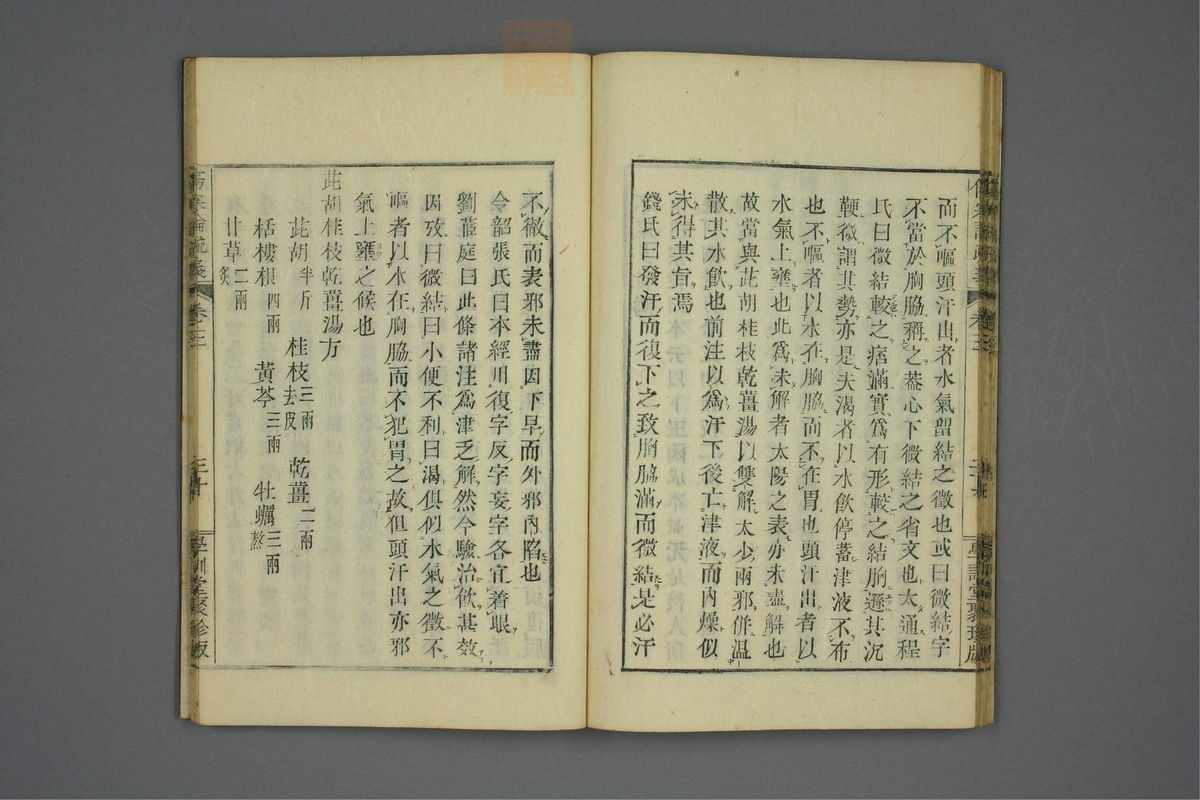 而不嘔頭汗出者水氣留結之徵也或曰微結字
不當於胸脇稱之蓋心下微結之省文也太通程
氏曰微結較之痞滿實爲有形較之結胸遜其沉
鞕微謂其勢亦是夫渴者以水飮停蓄津液不布
也不嘔者以水在胸脇而不在胃也頭汗出者以
水氣上壅也此爲未解者太陽之表亦未盡解也
故當與茈胡桂枝乾薑湯以雙解太少兩邪併溫
散其水飮也前注以爲汗下後亡津液而內燥似
未得其旨焉
錢氏曰發汗而復下之致胸脇滿而微結是必汗
不徹而表邪未盡因下早而外邪內陷也
令韶張氏曰本經用復字反字妄字各宜着眼
劉茝庭曰此條諸注爲津乏解然今驗治飮甚效
因攷曰微結曰小便不利曰渴俱似水氣之徵不
嘔者以水在胸脇而不犯胃之故但頭汗出亦邪
氣上壅之候也
茈胡桂枝乾薑湯方
茈胡半斤 桂枝三兩去皮 乾薑二兩
栝樓根四兩 黃芩三兩 牡蠣三兩熬
甘草二兩炙
傷寒論疏義 卷三 學訓堂聚珍版